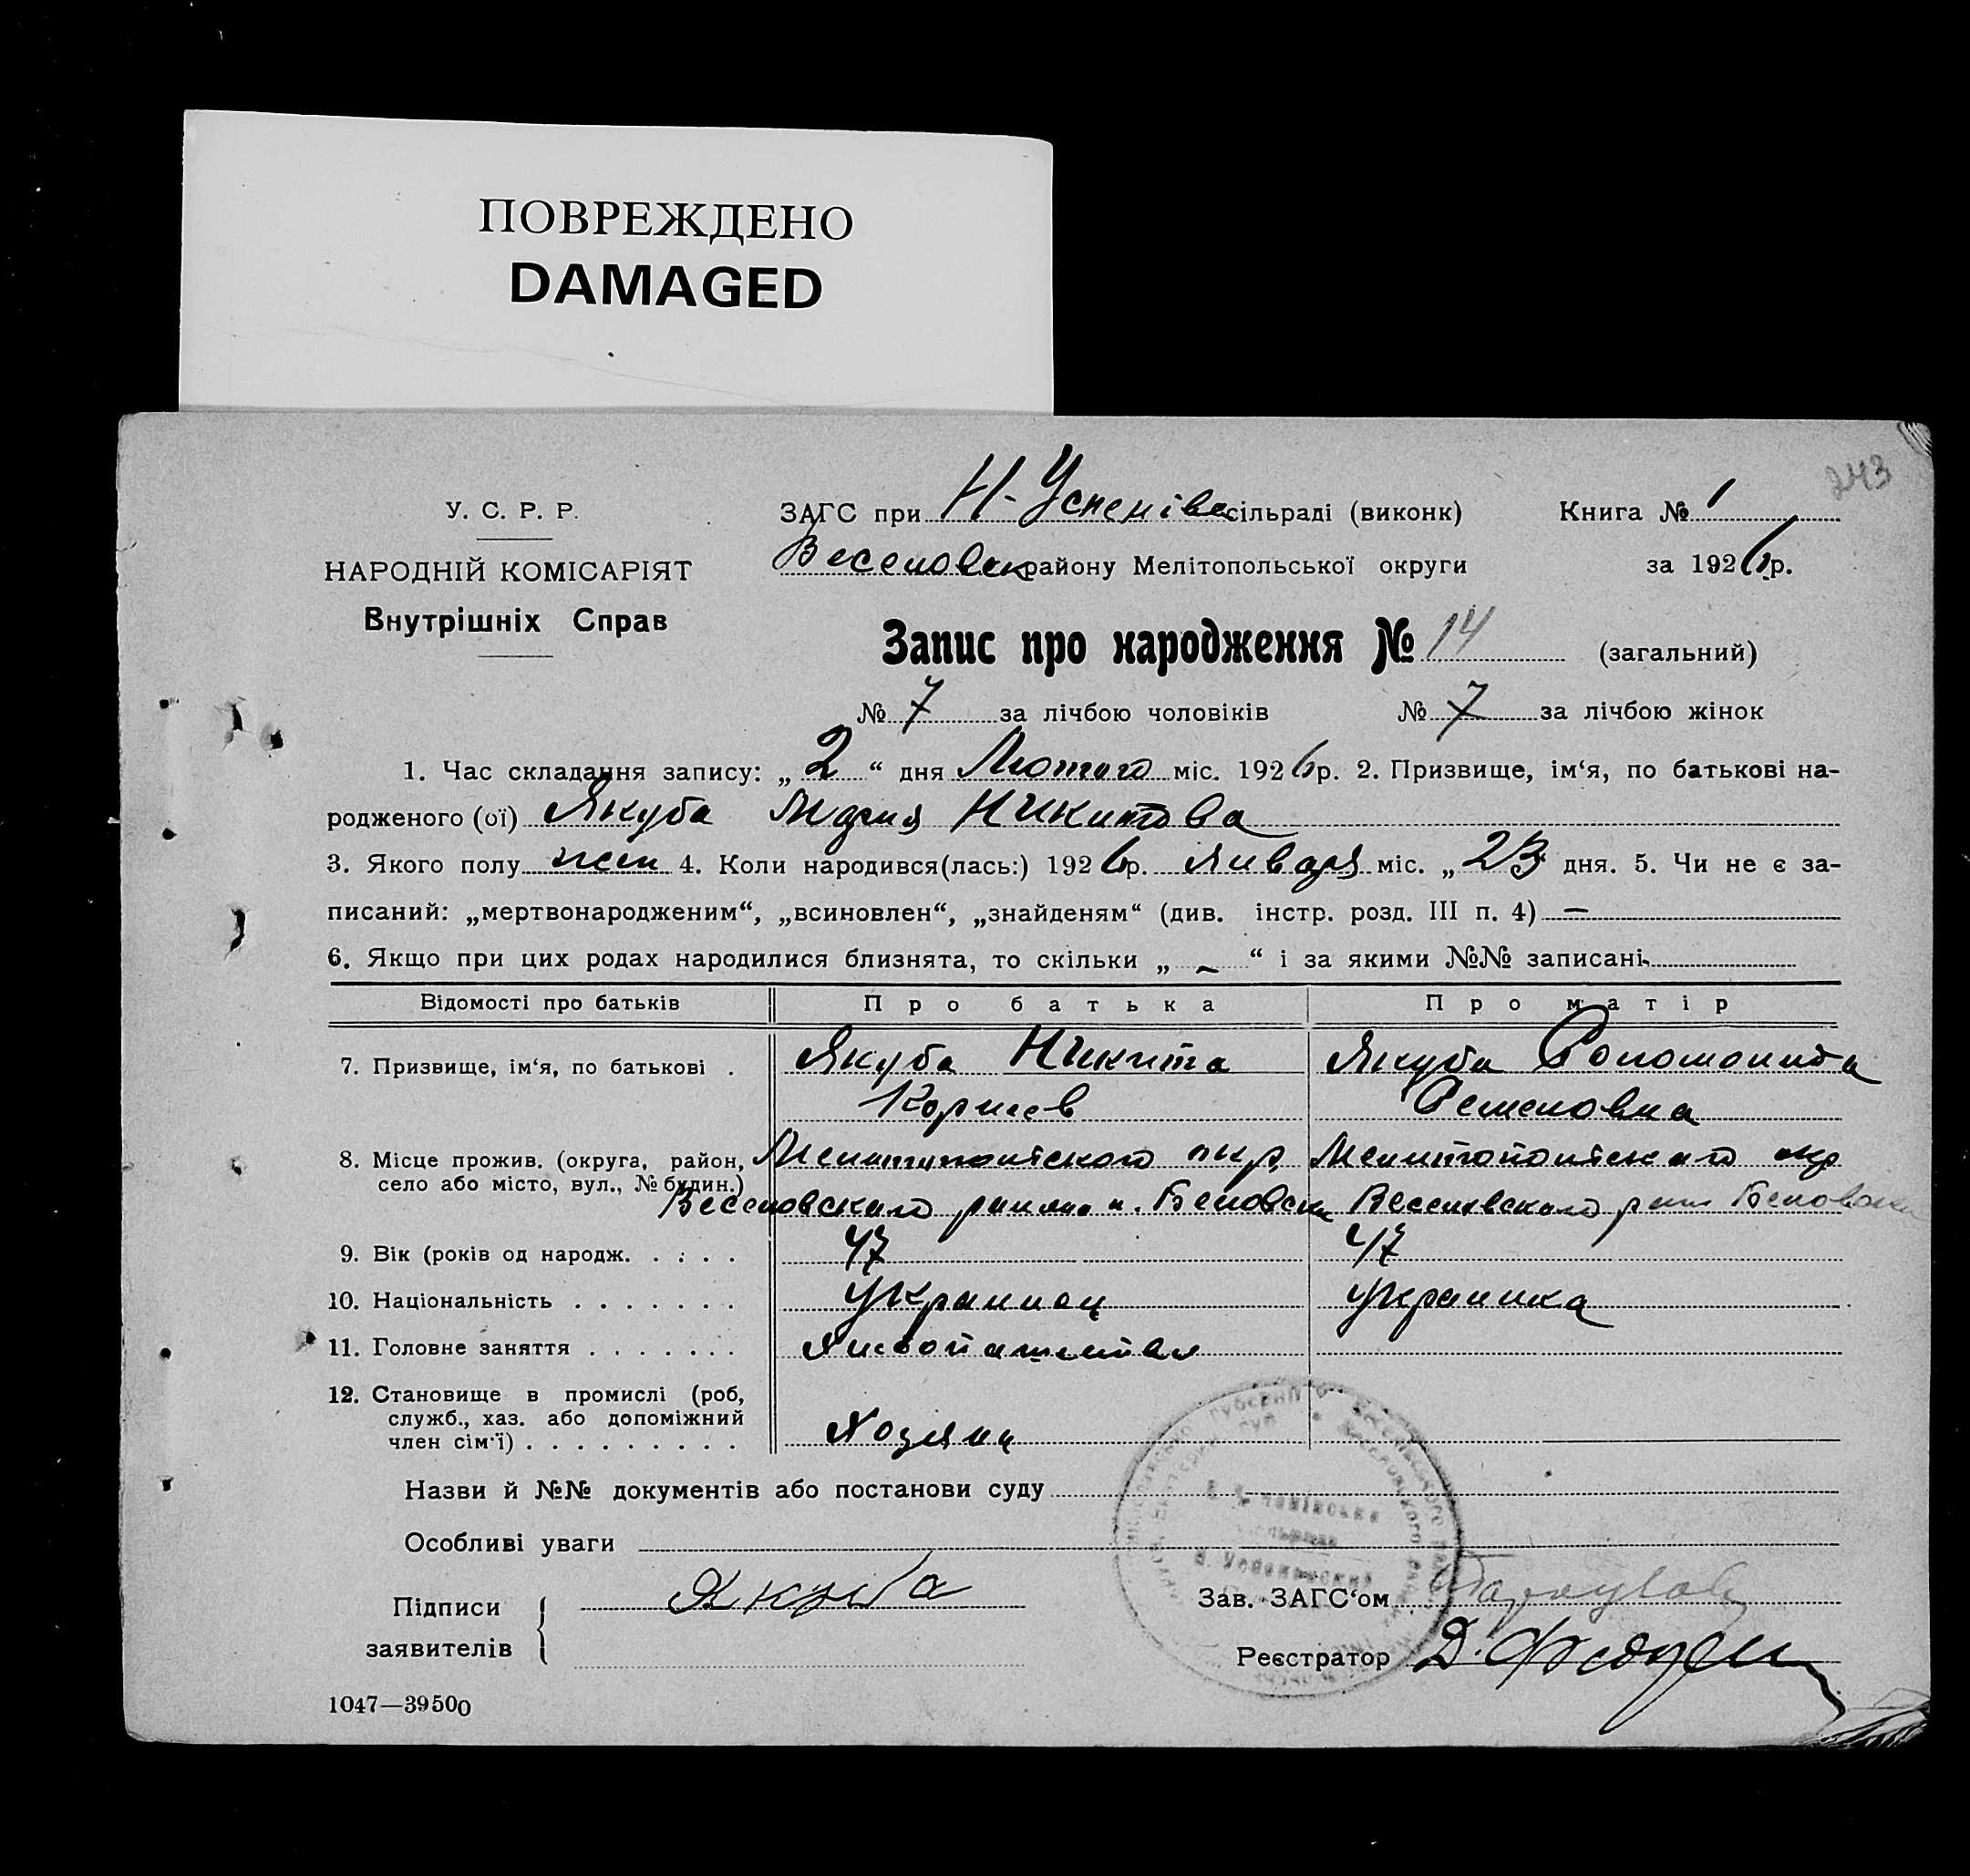 ПОВРЕЖДЕНО
DAMAGED
243
У. С. Р. Р.
НАРОДНІЙ КОМІСАРІЯТ
Внутрішніх Справ
ЗАГС при Н-Успенівс сільраді (виконк) Книга № 1
Веселовск району Мелітопольської округи за 1926 р.
Запис про народження № 14 (загальний)
№ 7 за лічбою чоловіків № 7 за лічбою жінок
1. Час складання запису: „ 2 “ дня Лютого міс. 1926 р. 2. Призвище, ім‘я, по батькові на-
родженого (ої) Якуба Лидия Никитова
3. Якого полу жен 4. Коли народився(лась:) 1926 р. Января міс. „ 23 дня. 5. Чи не є за-
писаний: „мертвонародженим“, „всиновлен“, „знайденям“ (див. інстр. розд. III п. 4) —
6. Якщо при цих родах народилися близнята, то скільки „ ~ “ і за якими №№ записані
Відомості про батьків Про батька Про матір
7. Призвище, ім‘я, по батькові . Якуба Никита Якуба Соломонида
Корнеев Семеновна
8. Місце прожив. (округа, район, Мелитопольского окр Мелитопольского окр
село або місто, вул., № будин.) Веселовского района Беловск Веселовского Беловск
9. Вік (років од народж. . . . . 47 47
10. Національність . . . . . . . Украинец Украинка
11. Головне заняття . . . . . . . Хлебопашество
12. Становище в промислі (роб,
служб., хаз. або допоміжний
член сім‘ї) . . . . . . . . . Хозяин
Назви й №№ документів або постанови суду
Особливі уваги
Підписи Якуба Зав. ЗАГС‘ом
заявителів Реєстратор Д.
1047—39500